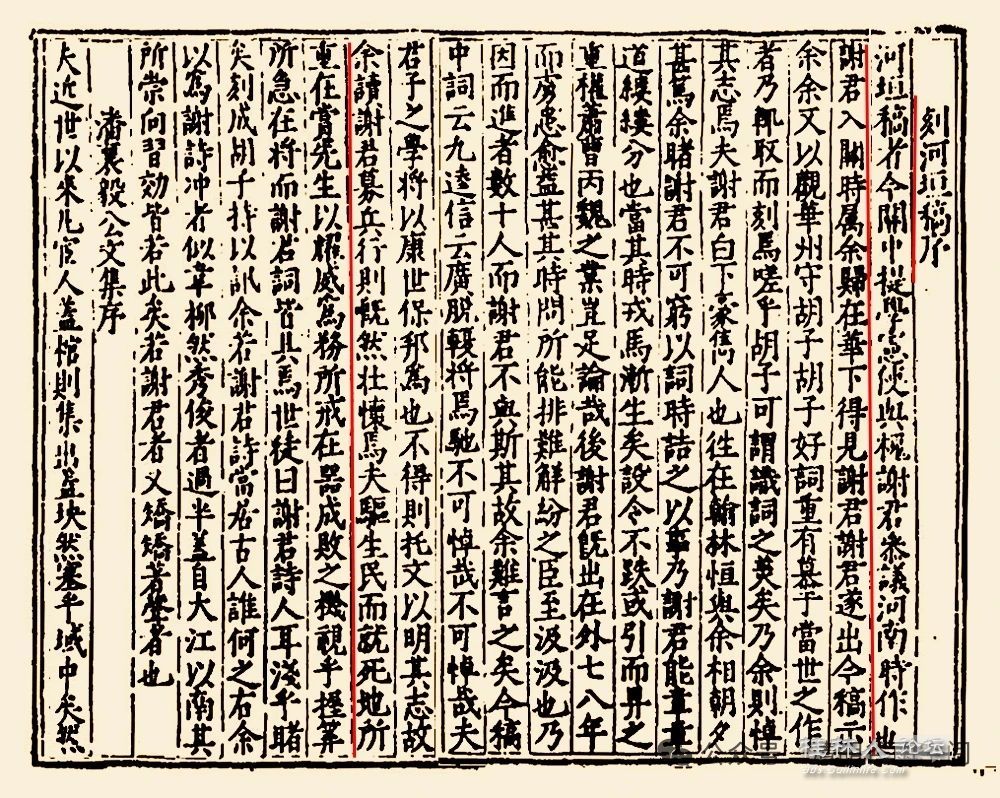 刻河垣稿序
河垣稿者今關中提學憲使與槐謝君叅議河南時作也
謝君入關時属余歸在華下得見謝君謝君遂出今稿示
余余又以觀華州守胡子胡子好詞重有慕于當世之作
者乃輒取而刻焉嗟乎胡子可謂識詞之英矣乃余則悼
其志焉夫謝君白下豪雋人也徃在翰林恒與余相朝夕
甚篤余睹謝君不可窮以詞時詰之以事乃謝君能章章
道縷縷分也當其時戎馬漸生矣設令不跌或引而昇之
重權蕭曹丙魏之業豈足論哉後謝君旣出在外七八年
而虜患愈益甚其時問所能排難解紛之臣至汲汲也乃
因而進者數十人而謝君不與斯其故余難言之矣今稿
中詞云九逵信云廣脫輹將焉馳不可悼哉不可悼哉夫
君子之學將以康世保邦爲也不得則托文以明其志故
余讀謝君募兵行則旣然壮懐焉夫驅生民而就死地所
重在賞先生以耀威爲務所戒在器成敗之機視乎握筭
所急在將而謝君詞皆具焉世徒曰謝君詩人耳淺乎睹
矣刻成胡子持以訊余若謝君詩當居古人誰何之右余
以爲謝詩冲者似韋栁然秀俊者過半蓋自大江以南其
所崇向習効皆若此矣若謝君者又矯矯著聲者也
潘襄毅公文集序
夫近世以來凡宦人蓋棺則集出蓋坱然塞乎域中矣然
桂林人论坛